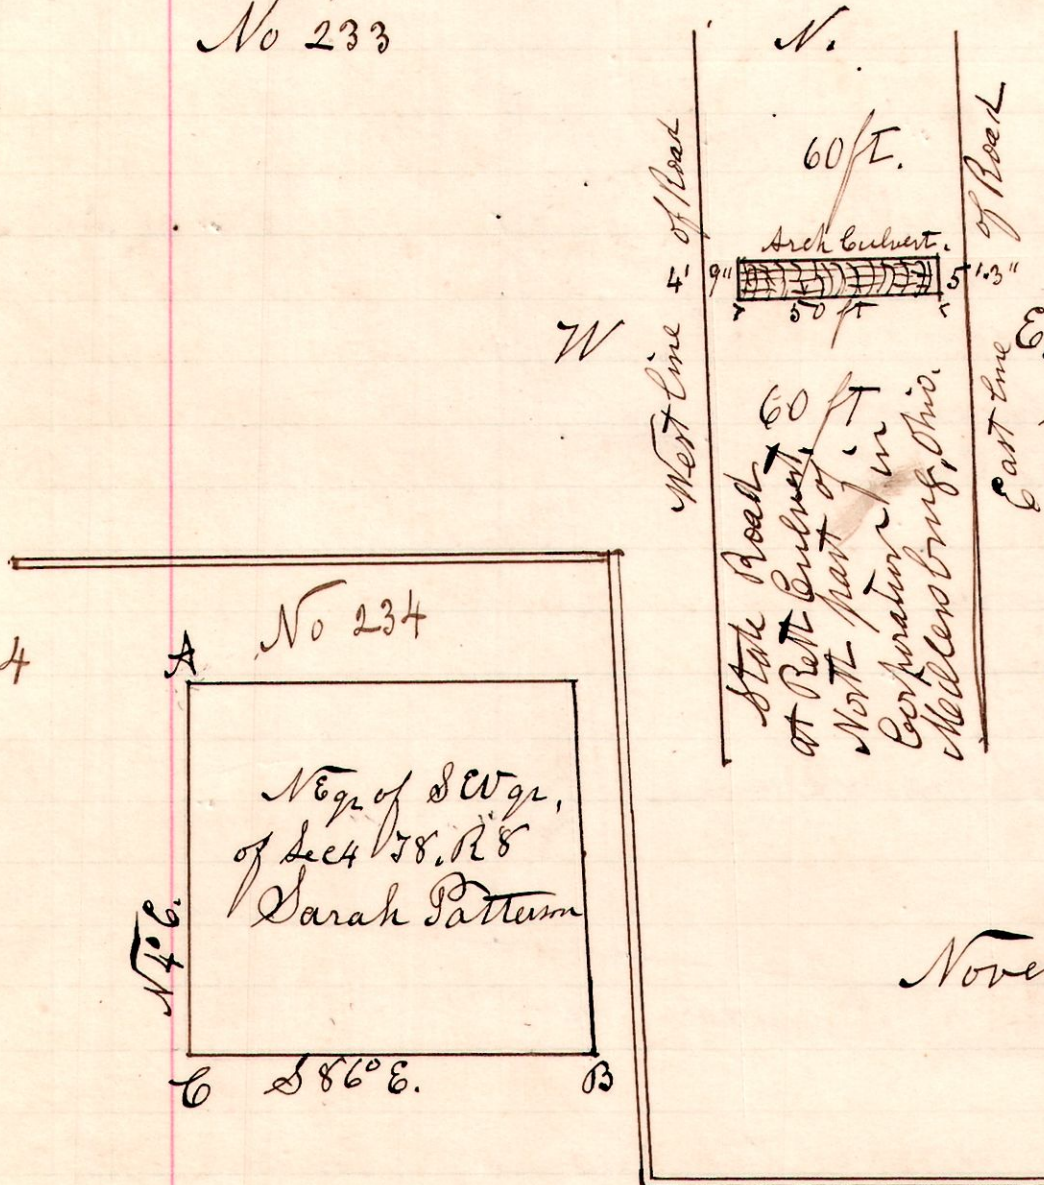 No 233
N.
60 ft.
West line of Road
Arch Culvert.
4' 9"
5' 3"
50 ft
W
E.
East line of Road
State Road 60 ft
at Rett Culvert, in
North part of
Corporation in
Millersburg, Ohio.
4
No 234
A
NE qr of SW qr,
of Sec 4 T8. R8
Sarah Patterson
N 4° E.
C
S 86° E.
B
Nove